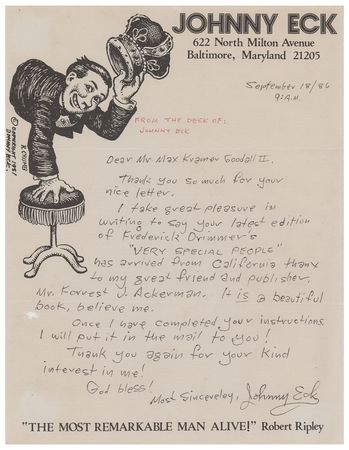 JOHNNY ECK
622 North Milton Avenue
Baltimore, Maryland 21205
September 18/86
9:A.M.
FROM THE DESK OF:
JOHNNY ECK
R. CRUMB
© COPYRIGHT 1985
JOHNNY ECK.
Dear Mr. Max Kramer Goodall II.
Thank you so much for your
nice letter.
I take great pleasure in
writing to say your latest edition
of Frederick Drimmer's
"VERY SPECIAL PEOPLE"
has arrived from California thanx
to my great friend and publisher.
Mr. Forrest J. Ackerman. It is a beautiful
book, believe me.
Once I have completed your instructions
I will put it in the mail to you!
Thank you again for your kind
interest in me!
God bless!
Most Sincereley, Johnny Eck
"THE MOST REMARKABLE MAN ALIVE!" Robert Ripley